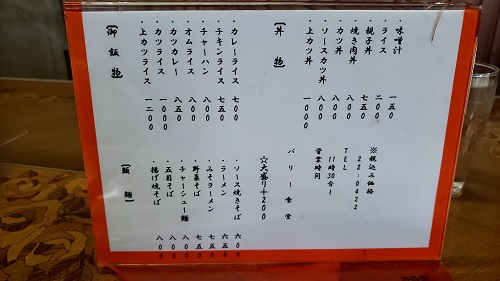 ・味噌汁 一五〇
・ライス 二〇〇
・親子丼 七五〇
・焼き肉丼 八〇〇
・カツ丼 八〇〇
・ソースカツ丼 八〇〇
・上カツ丼 一〇〇〇
【丼 物】
・カレーライス 七〇〇
・チキンライス 七五〇
・チャーハン
・オムライス
・カツカレー 八五〇
・カツライス 一〇〇〇
・上カツライス 一二〇〇
【御 飯 物】
※税込み価格
22-0422
TEL
11時30分~
営業時間
バリー食堂
☆大盛り+200
・ソース焼きそば 六〇〇
・ラーメン 六五〇
・みそラーメン 七五〇
・野菜そば 七五〇
・チャーシュー麺 八〇〇
・五目そば 八〇〇
・揚げ焼そば 八〇〇